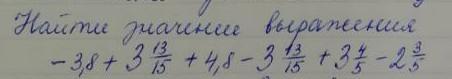 Найти значение выражения
-3,8 + 3 13/15 + 4,8 - 3 13/15 + 3 4/5 - 2 3/5